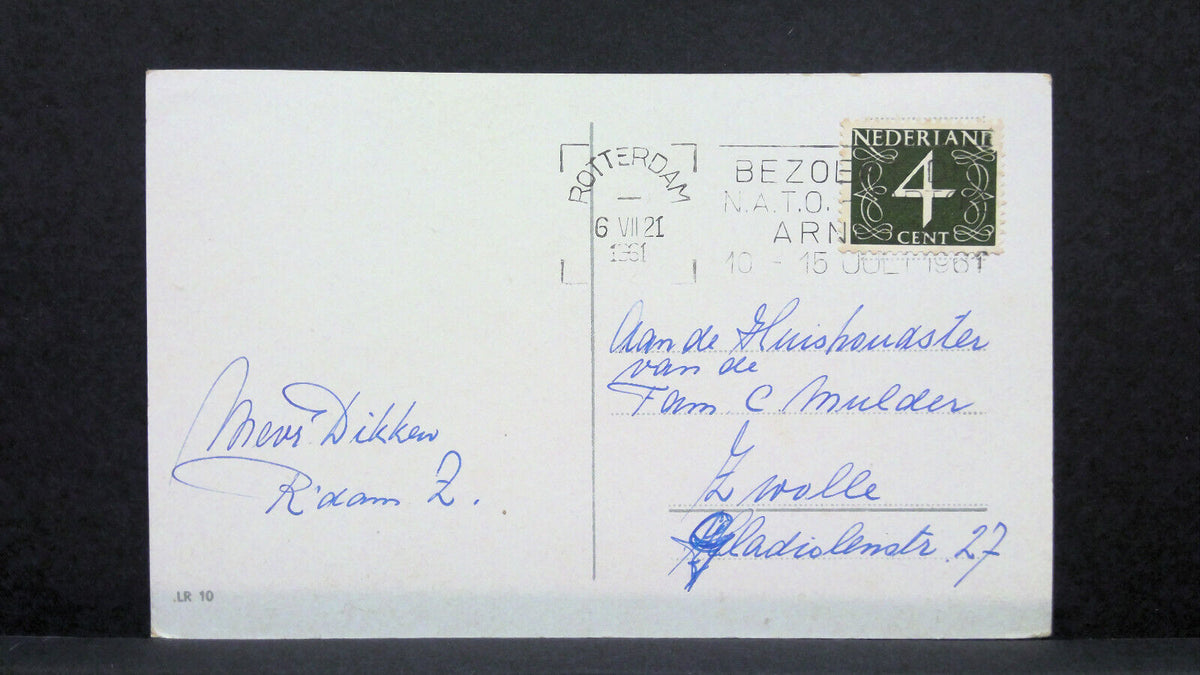 ROTTERDAM
6 VII 21
1961
BEZOE
N.A.T.O.
ARN
10 - 15 JULI 1961
NEDERLAND
4
CENT
Aan de Huishoudster
van de
Fam. C. Mulder
Zwolle
Gladiolenstr. 27
Mevr Dikken
R'dam Z.
.LR 10